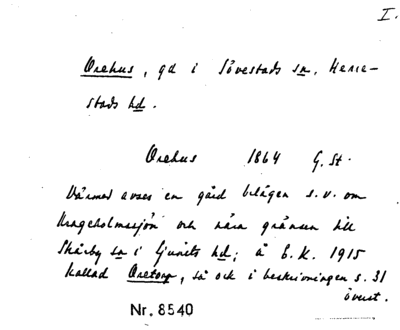 I.
Orehus, gd i Sövestads sn. Herre-
stads hd.
Orehus 1864 G. St.
Därmed avses en gård belägen s.v. om
Krageholmssjön och nära gränsen till
Skårby sn i Ljunits hd; å E.K. 1915
kallad Oretorp, så ock i beskrivningen s. 31
överst.
Nr. 8540